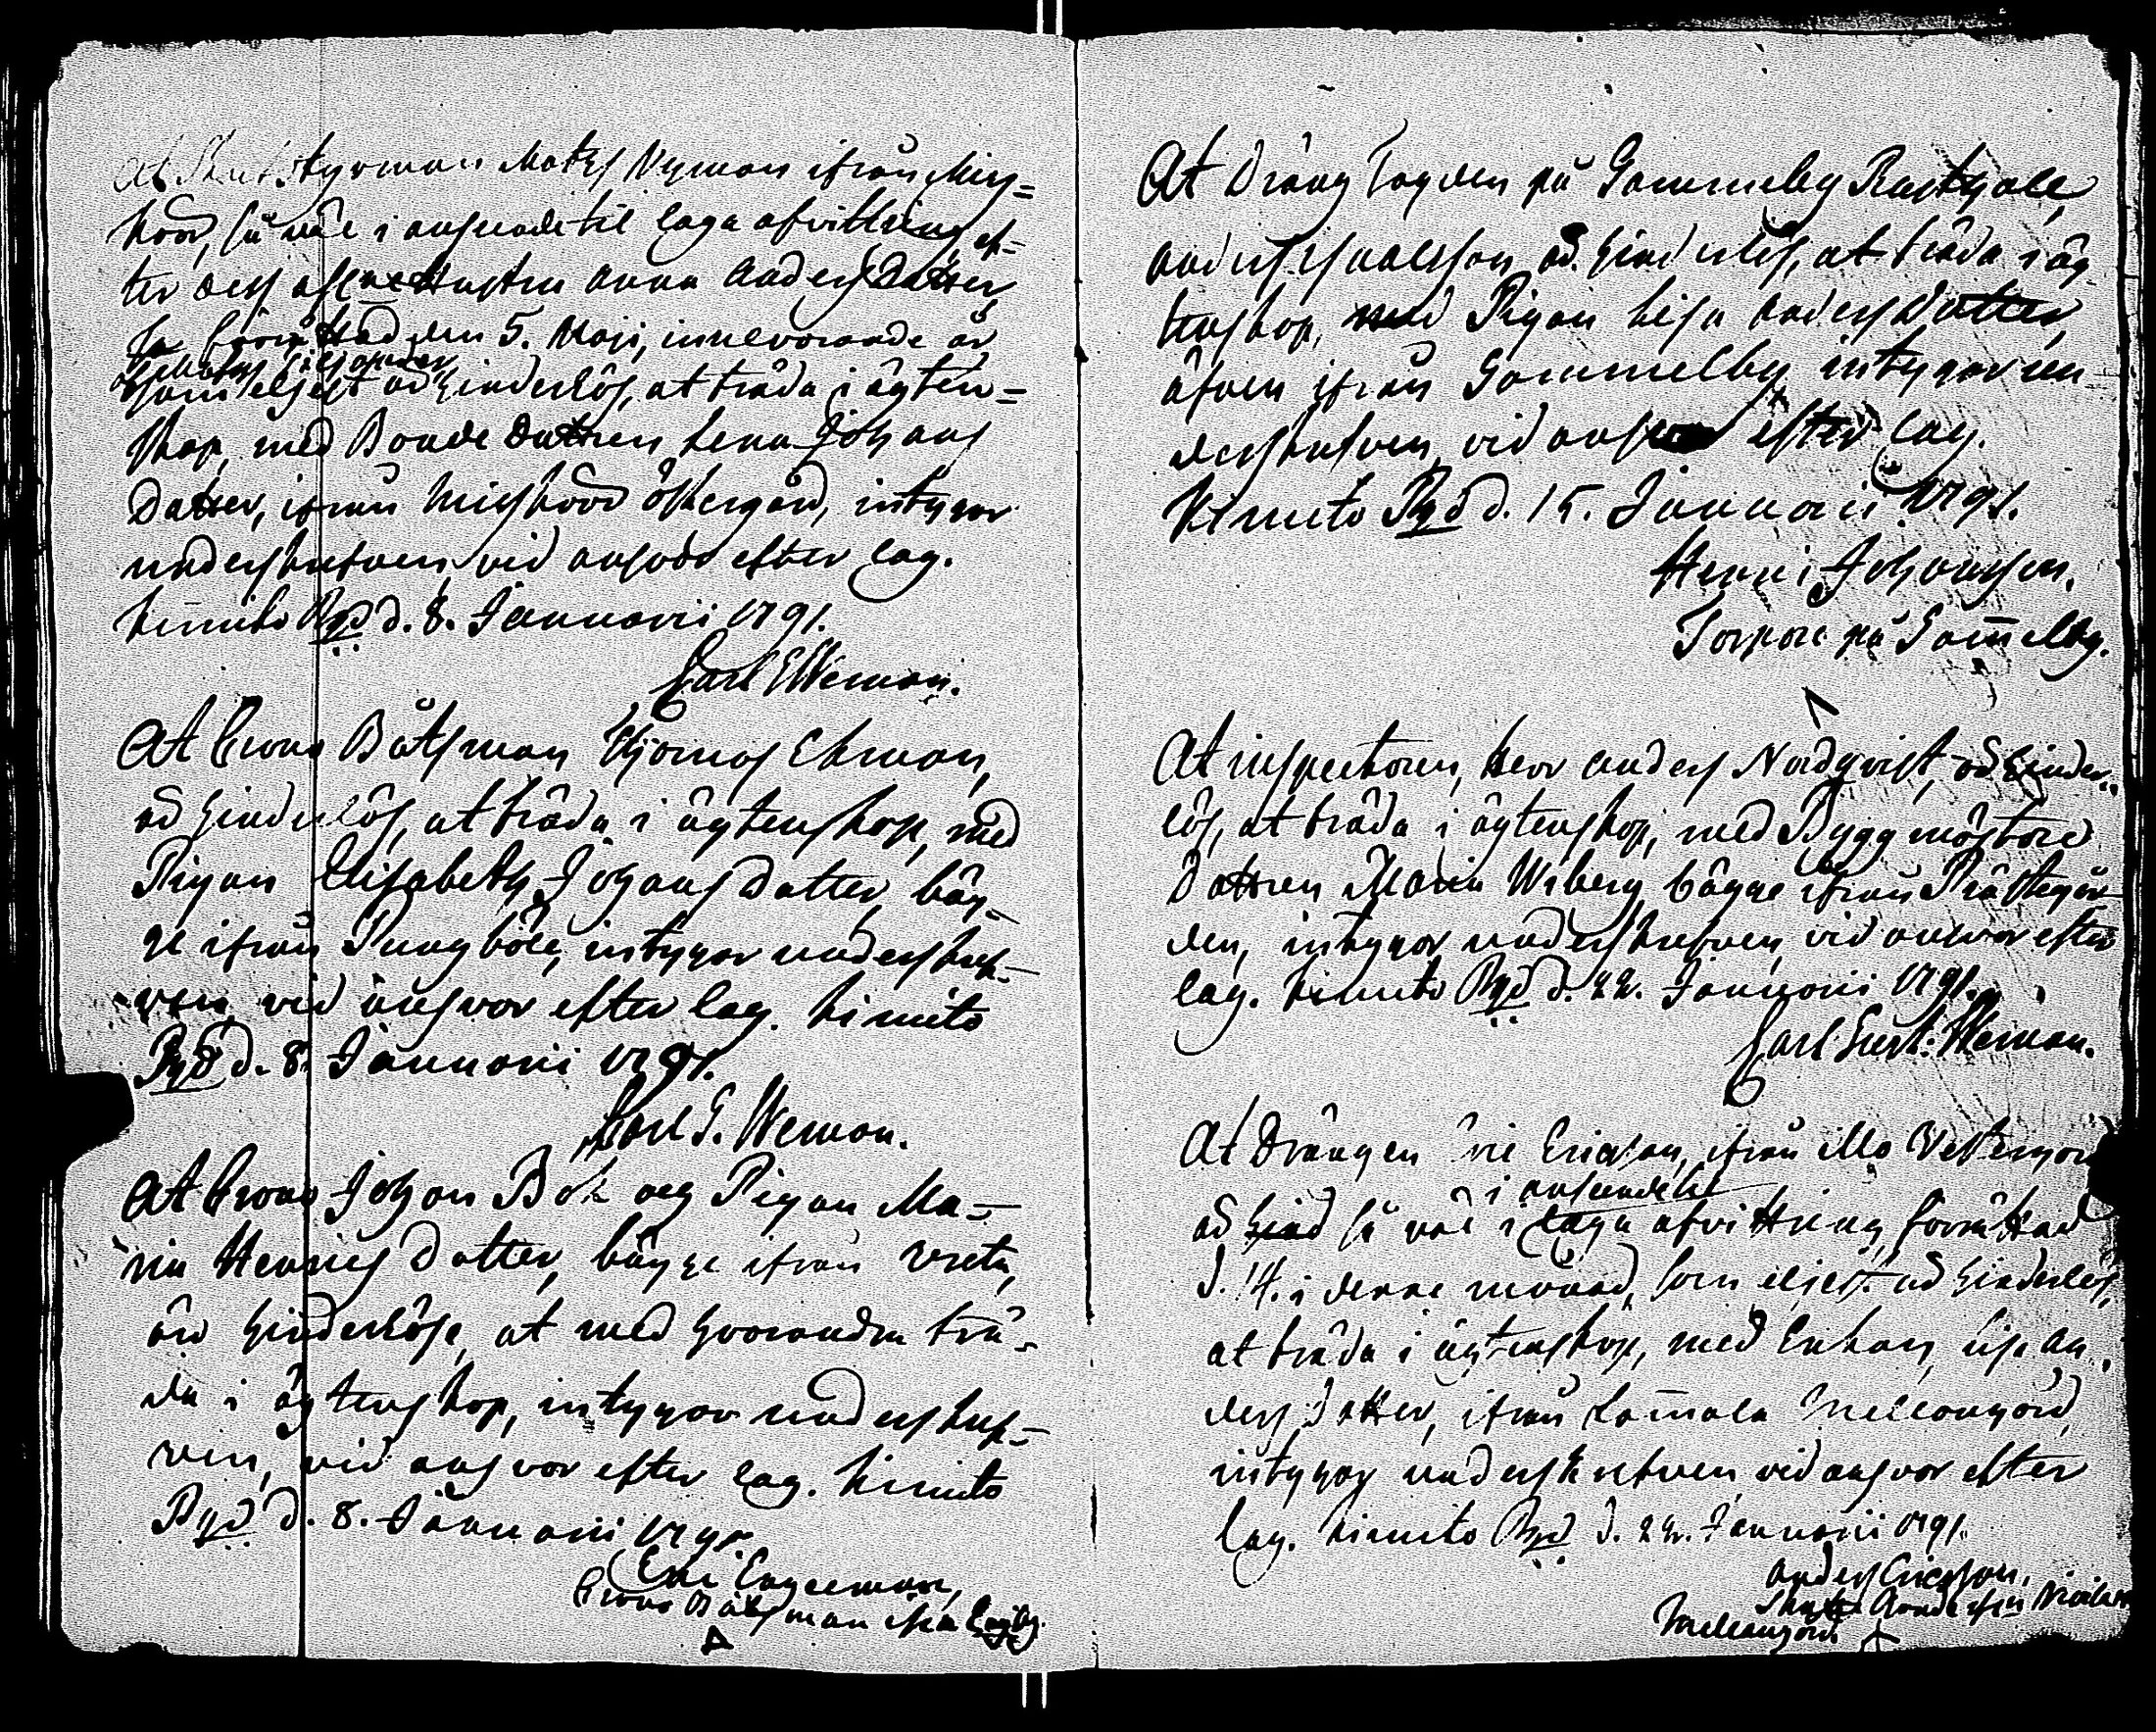 At Skutstyrman Mats Nyman ifrån Mis=
koor, så wäl i anseende til laga afvittring ef=
ter dess afledne Hustru Anna Anders Datter
förrättad den 5. Maji, innevarande år
som eljest är hinderlös, at träda i ägten=
skap, med Bonde Dattren Lena Johans
Datter, ifrån Miskoor östergård, intygar
underskrefven, vid answar efter lag.
Kimito Pgd d. 8. Januarii 1791.
Carl E Weman.
At Crono Båtsman Thomas Ekman,
är hinderlös, at träda i ägtenskap, med
Pigan Elisabeth Johans Datter, båg=
ge ifrån Pungböle, intygar underskref=
ven, vid answar efter lag. Kimito
Pgd d. 8. Januarii 1791.
Carl G. Weman.
At Crono Johan Bok och Pigan Ma=
ria Henrics Datter, bägge ifrån Vreta,
äro hinderlöse, at med hvarandra trä=
da i ägtenskap, intygar underskref=
ven, vid answar efter lag. Kimito
Pgd d. 8. Januarii 1791.
Eric Engelman,
Crono Båtsman ifrån
At Dräng Fogden på Gammelby Rusthåll
Anders är hinderlös, at träda i äg
tenskap, med Pigan Lisa Anders Datter,
äfven ifrån Gammelby intygar un
derskrefven, vid answar efter lag.
Kimito Pgd d. 15. Januarii 1791.
Henric Johansson.
Torpare på Gam̄elby.
At inspectoren, Herr Anders Nordqvist, är hinder=
lös, at träda i ägtenskap, med Byggmästare
Dattren Maria Wiberg, bägge ifrån Prästegår=
den, intygar underskrefven, vid answar efter
lag. Kimito Pgd d. 22. Januarii 1791.
Carl Gust: Weman.
At Drängen Eric Ericsson, ifrån Mo Vestergård
i anseende til
är så wäl i laga afvittring, förrättad
d. 14. i denna månad, som eljest är hinderlös,
at träda i ägtenskap, med Enkan, Lisa An=
ders Datter, ifrån Lam̄ala Mellangård,
intygar underskrefven, vid answar efter
lag. Kimito Pgd d. 22. Januarii 1791.
Anders Ericsson,
Mellangård.